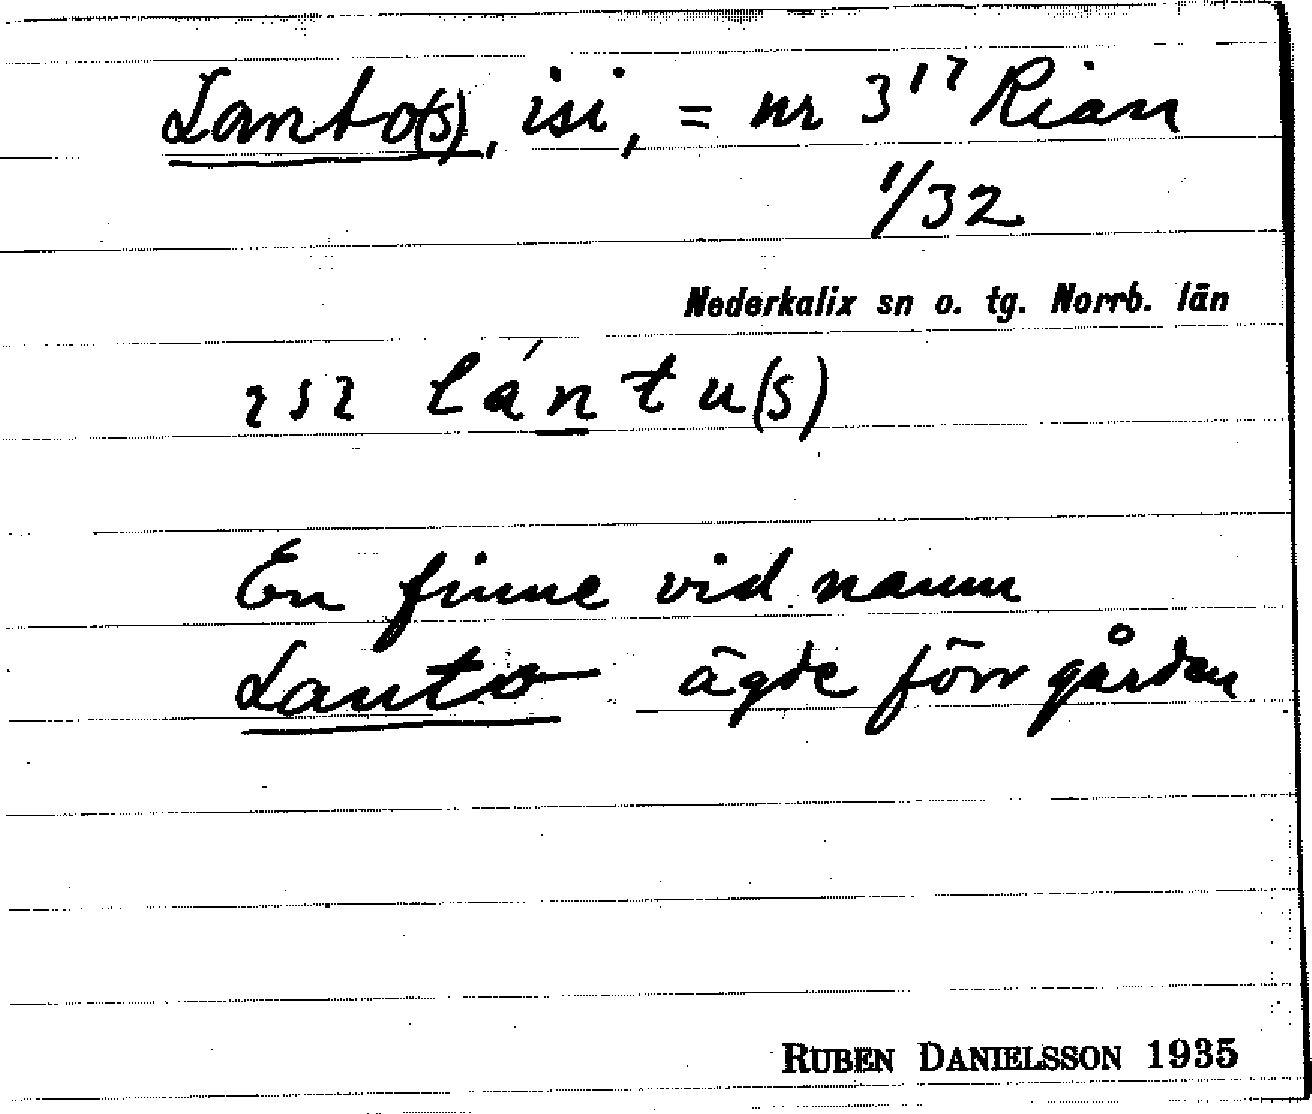 Lanto(s), isi, = nr 3¹⁷ Rian
1/32
Nederkalix sn o. tg. Norrb. län
ısı lántu(s)
En finne vid namn
Lanto ägde förr gården
RUBEN DANIELSSON 1935